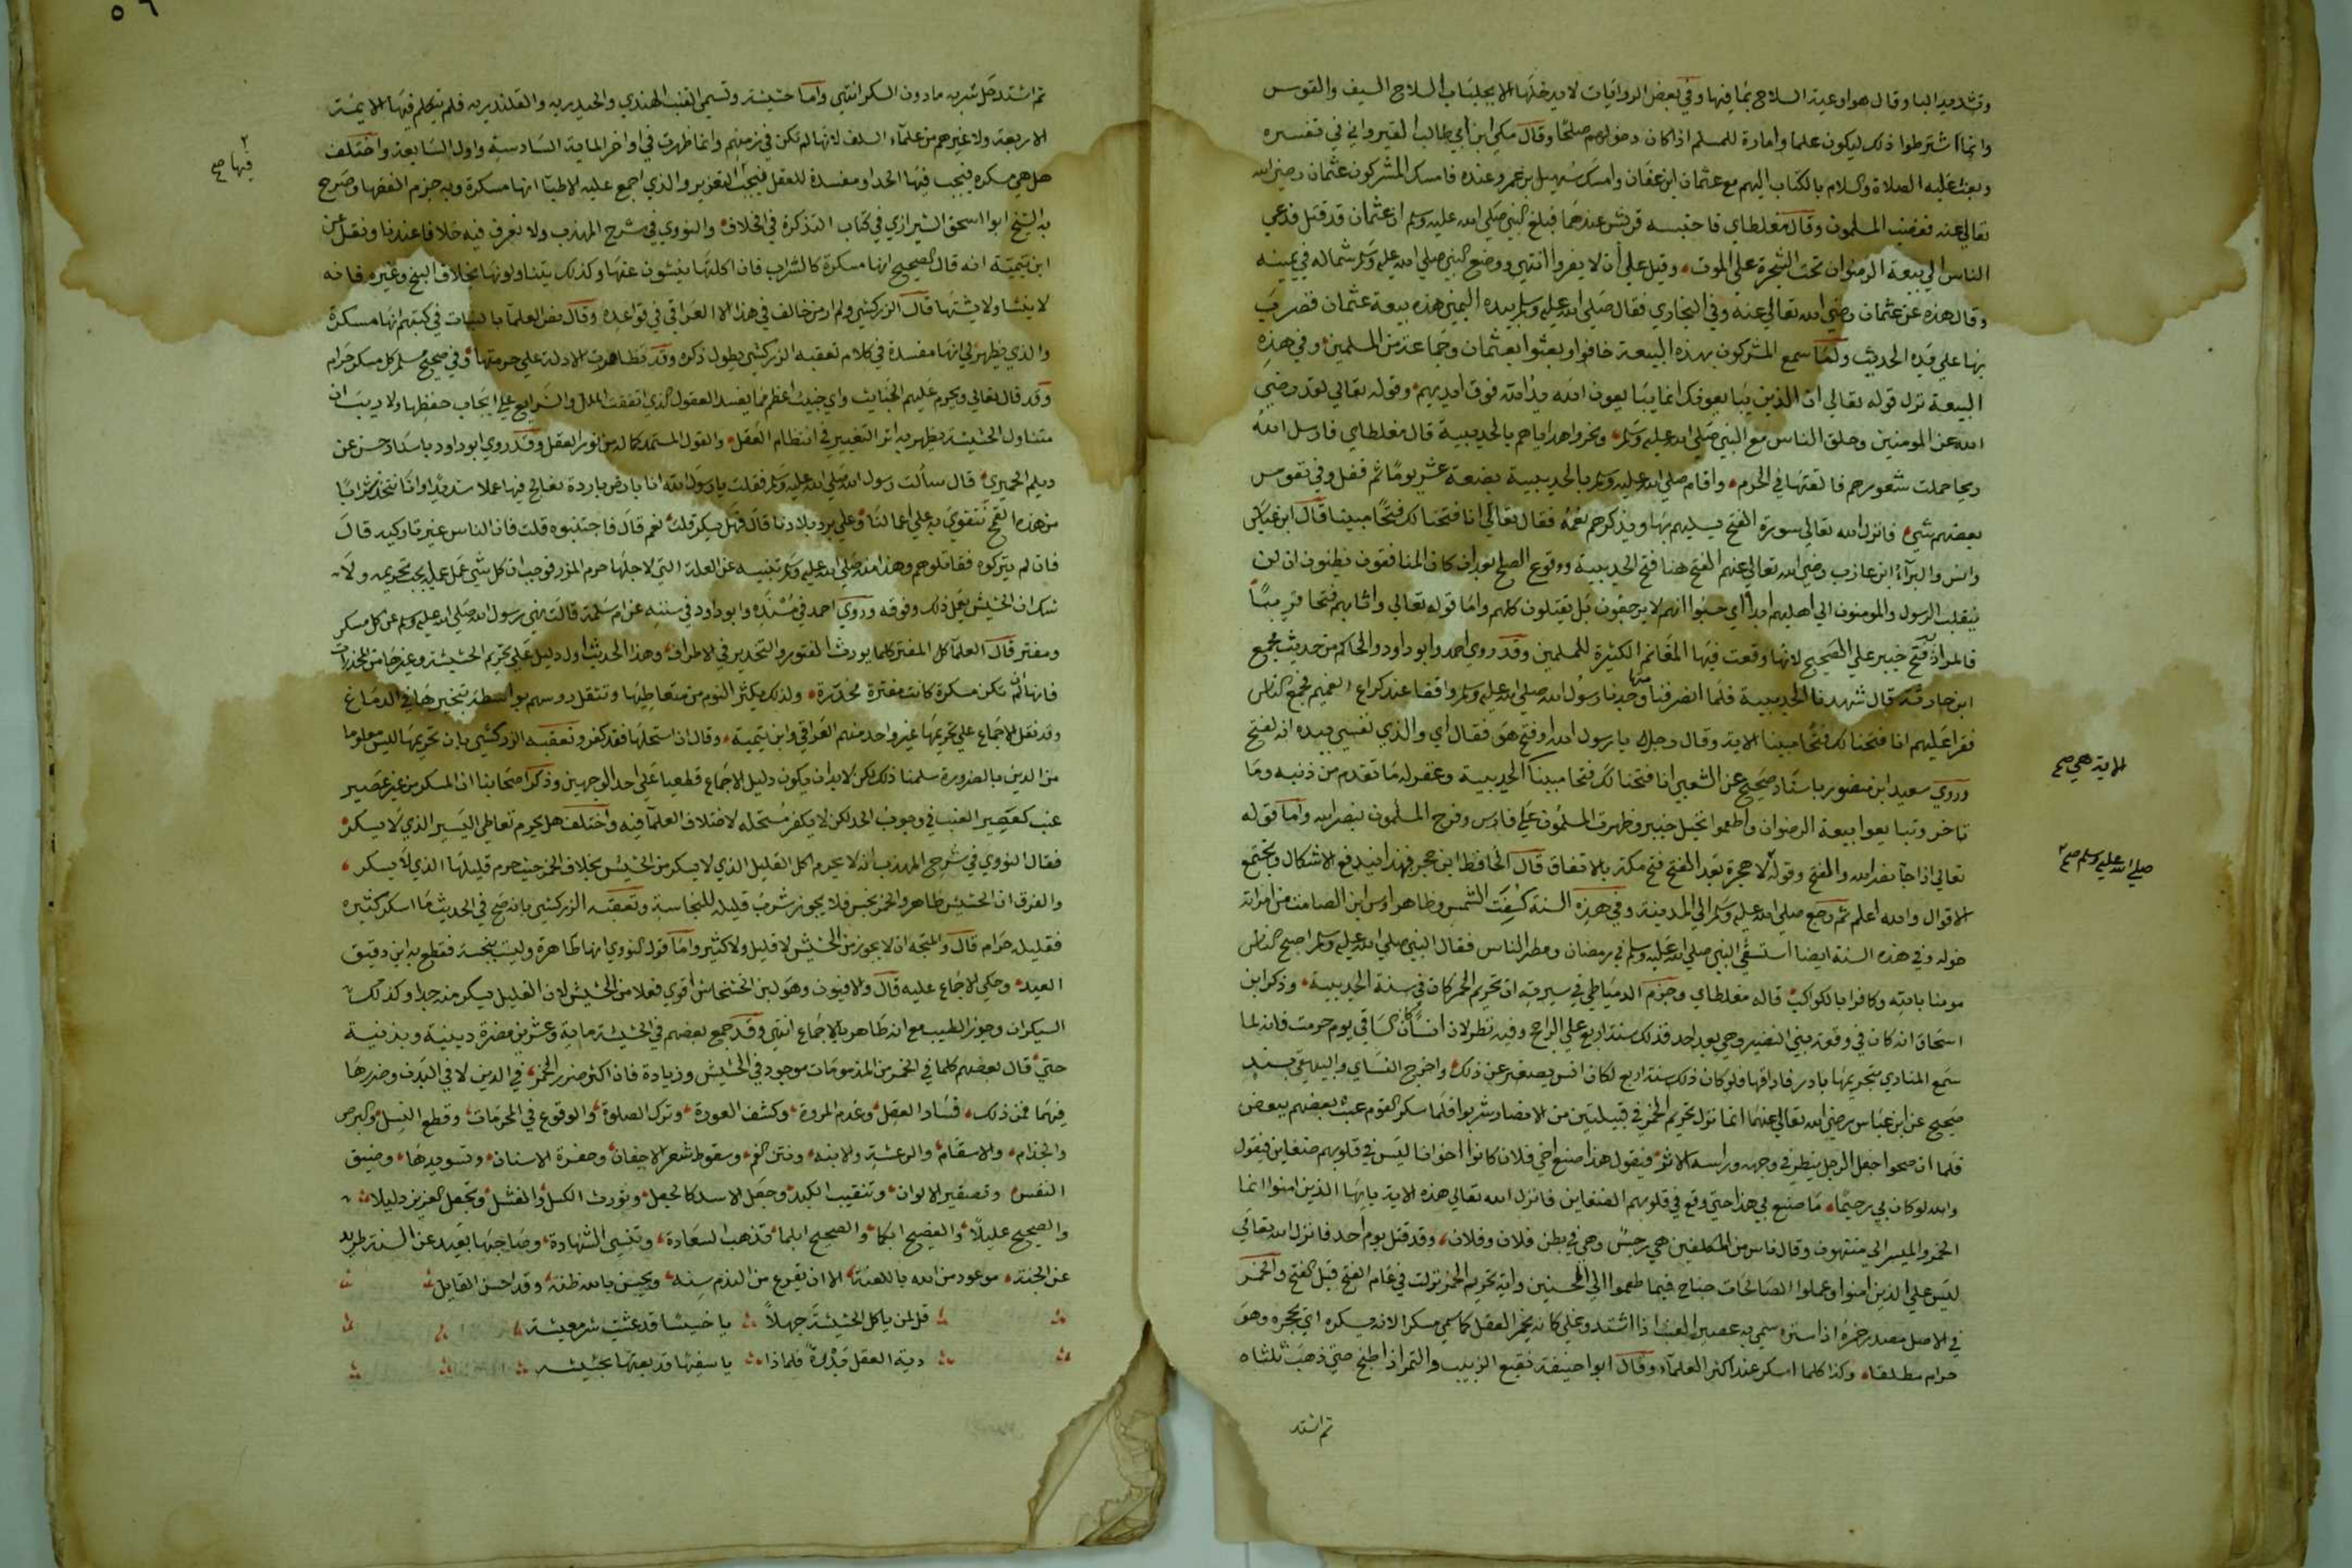 وتشديد البا وقال هو اوعية السلاح بما فيها وفي بعض الروايات لا يدخلها الا بجلبات السلاح السيف والقوس
وانما اشترطوا ذلك ليكون علما وامارة للمسلم اذا كان دخولهم صلحا وقال مكي ابن ابي طالب القيرواني في تفسيره
وبعث عليه الصلاة والسلام بالكتاب اليهم مع عثمان ابن عفان وامسك سهيل بن عمرو عنده فامسك المشركون عثمان رضي الله
تعالى عنه فغضب المسلمون وقال مغلطاي فاحتبسه قريش عندها فبلغ النبي صلى الله عليه وسلم ان عثمان قد قتل فدعي
الناس الى بيعة الرضوان تحت الشجرة على الموت وقيل على أن لا يفروا انتهى ووضع النبي صلى الله عليه وسلم شماله في يمينه
وقال هذه عن عثمان رضي الله تعالى عنه وفي البخاري فقال صلى الله عليه وسلم بيده اليمني هذه بيعة عثمان فضرب
بها على يده الحديث ولما سمع المشركون بهذه البيعة خافوا وبعثوا بعثمان وجماعة من المسلمين وفي هذه
البيعة نزل قوله تعالى ان الذين يبايعونك انما يبايعون الله يد الله فوق ايديهم وقوله تعالى لقد رضي
الله عن المومنين وحلق الناس مع النبي صلى الله عليه وسلم ونحروا هداياهم بالحديبية قال مغلطاي فارسل الله
ريحا حملت شعورهم فالقتها في الحرم واقام صلى الله عليه وسلم بالحديبية بضعة عشر يوما ثم قفل وفي نفوس
بعضهم شيء فانزل الله تعالى سورة الفتح يسليهم بها ويذكرهم نعمه فقال تعالى انا فتحنا لك فتحا مبينا قال ابن عباس
وانس والبرآء ابن عازب رضي الله تعالى عنهم الفتح هنا فتح الحديبية ووقوع الصلح بعد ان كان المنافقون يظنون ان لن
ينقلب الرسول والمومنون الى اهليهم ابدا اي حسبوا انهم لا يرجعون بل يقتلون كلهم واما قوله تعالى واثابهم فتحا قريبا
فالمراد فتح خيبر على الصحيح لانها وقعت فيها المغانم الكثيرة للمسلمين وقد روي احمد وابو داود والحاكم من حديث مجمع
ابن حارثة قال شهدنا الحديبية فلما انصرفنا منها وجدنا رسول الله صلى الله عليه وسلم واقفا عند كراع الغميم فجمع الناس
فقرا عليهم انا فتحنا لك فتحا مبينا الاية وقال رجل يا رسول الله او فتح هو فقال اي والذي نفسي بيده انه لفتح
وروي سعيد ابن منصور باسناد صحيح عن الشعبي انا فتحنا لك فتحا مبينا الحديبية وغفر له ما تقدم من ذنبه وما
الاية هي صح
تاخر وتبايعوا بيعة الرضوان واطعموا نخيل خيبر وظهرت المسلمون على فارس وفرح المسلمون بنصر الله واما قوله
تعالى اذا جآ نصر الله والفتح وقوله لا هجرة بعد الفتح فتح مكة بالاتفاق قال الحافظ ابن حجر فبهذا يندفع الاشكال وتجتمع
صلى الله عليه وسلم صح
الاقوال والله اعلم ثم رجع صلى الله عليه وسلم الى المدينة وفي هذه السنة كسفت الشمس وظاهر اوس ابن الصامت من امراته
خوله وفي هذه السنة ايضا استسقى النبي صلى الله عليه وسلم في رمضان ومطر الناس فقال النبي صلى الله عليه وسلم اصبح الناس
مومنا بالله وكافرا بالكواكب قاله مغلطاي وجزم الدمياطي في سيرته ان تحريم الخمر كان في سنة الحديبية وذكر ابن
اسحاق انه كان في وقعة بني النضير وهي بعد احد وذلك سنة اربع على الراجح وفيه نظر لان انسا كان الساقي يوم حرمت فانه لما
سمع المنادي بتحريمها بادر فاراقها فلو كان ذلك سنة اربع لكان انس يصغر عن ذلك واخرج النساي والبيهقي بسند
صحيح عن ابن عباس رضي الله تعالى عنهما انما نزل تحريم الخمر في قبيلتين من الانصار شربوا فلما سكر القوم عبث بعضهم ببعض
فلما ان صحوا جعل الرجل ينظر في وجهه وراسه الاثر فيقول هذا صنع اخي فلان كانوا اخوانا ليس في قلوبهم ضغاين فيقول
والله لو كان بي رحيما ما صنع بي هذا حتى وقع في قلوبهم الضغاين فانزل الله تعالى هذه الاية يا يها الذين امنوا انما
الخمر والميسر الى منتهون وقال ناس من المكلفين هي رجس وهي في بطن فلان وفلان وقد قتل يوم احد فانزل الله تعالى
ليس على الذين امنوا وعملوا الصالحات جناح فيما طعموا الى المحسنين واية تحريم الخمر نزلت في عام الفتح قبل الفتح والخمر
في الاصل مصدر خمره اذا ستره سمي به عصير العنب اذا اشتد وغلي كانه يخمر العقل كما سمي مسكرا لانه يسكره اي يحجره وهو
حرام مطلقا وكذا كلما اسكر عند اكثر العلمآء وقال ابوا حنيفة نقيع الزبيب والتمر اذا طبخ حتى ذهب ثلثاه
ثم اشتد
٥٦
ثم اشتد حل شربه ما دون السكر انتهى واما حشيشة وتسمي القنب الهندي والحيدرية والقلندرية فلم يتكلم فيها الايمة
الاربعة ولا غيرهم من علمآء السلف لانها لم تكن في زمنهم وانما ظهرت في اواخر الماية السادسة واول السابعة واختلف
فيها صح
هل هي مسكرة فيجب فيها الحد او مفسدة للعقل فيجب التعزير والذي اجمع عليه الاطبآ انها مسكرة وبه جزم الفقها وصرح
به الشيخ ابوا اسحق الشيرازي في كتاب التذكرة في الخلاف والنووي في شرح المهذب ولا نعرف فيه خلافا عندنا ونقل عن
ابن تيمية انه قال الصحيح انها مسكرة كالشراب فان اكلتها ينشون عنها وكذلك يتناولونها بخلاف البنج وغيره فانه
لا ينشا ولا يشتها قال الزركشي ولم ار من خالف في هذا الا العراقي في قواعده وقال بعض العلمآ بالنبات في كتبهم انها مسكرة
والذي يظهر لي انها مفسدة في كلام تعقبه الزركشي يطول ذكره وقد تظاهرت الادلة على حرمتها وفي صحيح مسلم كل مسكر حرام
وقد قال تعالى ويحرم عليهم الخبايث واي خبيث اعظم مما يفسد العقول الذي اتفقت الملل والشرايع على ايجاب حفظها ولا ريب ان
متناول الحشيشة يظهر به اثر التغيير في انتظام العقل والقول المستمد كماله من نور العقل وقد روي ابو داود باسناد حسن عن
ديلم الحميري قال سألت رسول الله صلى الله عليه وسلم فقلت يا رسول الله انا بارض باردة نعالج فيها عملا شديدا وانا نتخذ شرابا
من هذه القمح نتقوي به على اعمالنا وعلى برد بلادنا قال فهل يسكر قلت نعم قال فاجتنبوه قلت فان الناس غير تاركيه قال
فان لم يتركوه فقاتلوهم وهذا منه صلى الله عليه وسلم تنبيه عن العلة التي لاجلها حرم المزر فوجب ان كل شي عمل عمله يجب تحريمه ولا
شك ان الحشيش يعمل ذلك وفوقه وروي احمد في مسنده وابو داود في سننه عن ام سلمة قالت نهي رسول الله صلى الله عليه وسلم عن كل مسكر
ومفتر قال العلمآ كل المفتر كلما يورث الفتور والتخدير في الاطراف وهذا الحديث اول دليل على تحريم الحشيشة وغيرها من المخدرات
فانها ان لم تكن مسكرة كانت مفترة مخدرة ولذلك يكثر النوم من متعاطيها وتثقل روسهم بواسطة تبخيرها في الدماغ
وقد نقل الاجماع على تحريمها غير واحد منهم العراقي وابن تيمية وقال ان استحلها فقد كفر وتعقبه الزركشي بان تحريمها ليس معلوما
من الدين بالضرورة سلمنا ذلك لكن لا بد ان يكون دليل الاجماع قطعيا على احد الوجهين وذكر اصحابنا ان المسكر من غير عصير
عنب كعصير العنب في وجوب الحد لكن لا يكفر مستحله لاختلاف العلمآ فيه واختلف هل يحرم تعاطي اليسير الذي لا يسكر
فقال النووي في شرح المهذب انه لا يحرم اكل القليل الذي لا يسكر من الحشيش بخلاف الخمر حيث حرم قليلها الذي لا يسكر
والفرق ان الحشيش طاهر والخمر نجس فلا يجوز شرب قليله للنجاسة وتعقبه الزركشي بانه صح في الحديث ما اسكر كثيره
فقليله حرام قال والمتجه انه لا يجوز من الحشيش لا قليل ولا كثير واما قول النووي انها طاهرة وليست بنجسة فقطع به ابن دقيق
العيد وحكي الاجماع عليه قال والافيون وهو لبن الخشخاش اقوي فعلا من الحشيش لان القليل يسكر منه جدا وكذلك
السيكران وجوز الطيب مع انه طاهر بالاجماع انتهى وقد جمع بعضهم في الحشيشة ماية وعشرين مضرة دينية وبدنية
حتى قال بعضهم كلما في الخمر من المذمومات موجود في الحشيش وزيادة فان اكثر ضرر الخمر في الدين لا في البدن وضررها
فيهما فمن ذلك فساد العقل وعدم المروة وكشف العورة وترك الصلوة والوقوع في المحرمات وقطع النسل والبرص
والجذام والاسقام والرعشة والابنه ونتن الفم وسقوط شعر الاجفان وحفرة الاسنان وتسويدها وضيق
النفس وتصفير الالوان وتنقيب الكبد وجعل الاسد كالجعل وتورث الكسل والفشل وتجعل العزيز ذليلا
والصحيح عليلا والفصيح ابكما والصحيح ابلما تذهب السعادة وتنسي الشهادة وصاحبها بعيد عن السنة طريد
عن الجنة موعود من الله باللعنة الا ان يقرع من الندم سنه ويحسن بالله ظنه وقد احسن القايل
قل لمن ياكل الحشيشة جهلا يا خسيسا قد عشت شر معيشة
دية العقل بدرة فلماذا يا سفيها قد بعتها بحشيشه